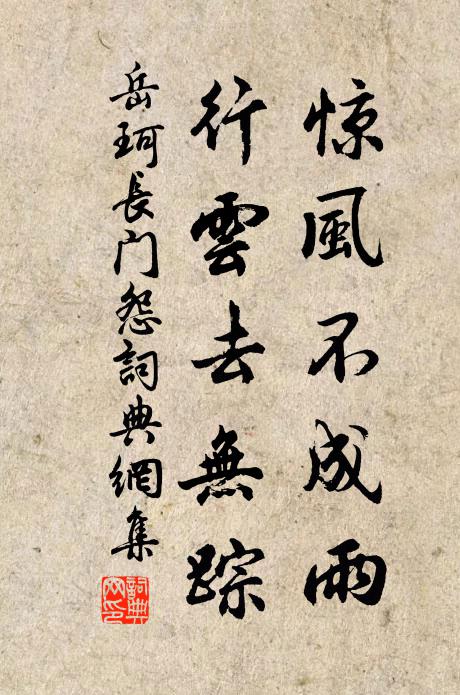 惊風不成雨
行雲去無踪
岳珂長门怨詞典網集
詞典網印